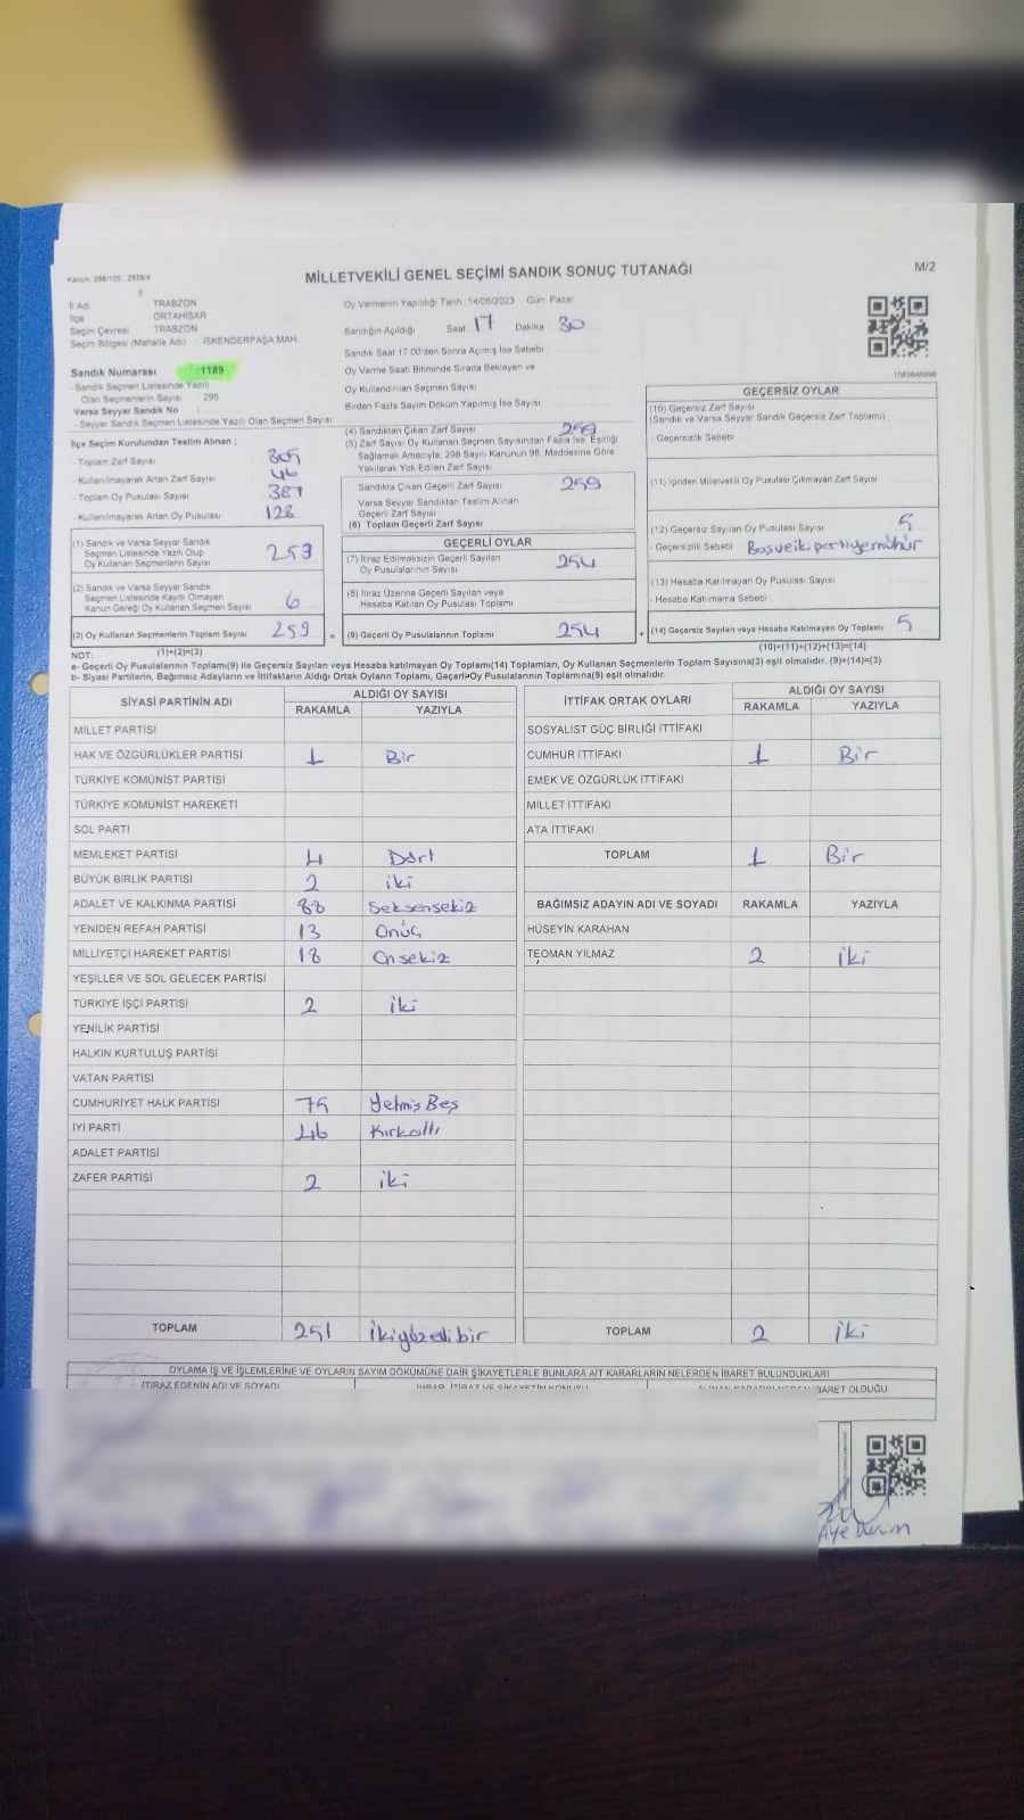 MİLLETVEKİLİ GENEL SEÇİMİ SANDIK SONUÇ TUTANAĞI
M/2
İl Adı TRABZON
İlçe ORTAHİSAR
Seçim Çevresi TRABZON
Seçim Bölgesi (Mahalle Adı) İSKENDERPAŞA MAH.
Oy Vermenin Yapıldığı Tarih :14/05/2023 Gün: Pazar
Sandığın Açıldığı Saat 17 Dakika 30
Sandık Saat 17.00'den Sonra Açılmış İse Sebebi
Oy Verme Saati Bitiminde Sırada Bekleyen ve
Oy Kullandırılan Seçmen Sayısı
Birden Fazla Sayım Döküm Yapılmış İse Sayısı
Sandık Numarası 1189
- Sandık Seçmen Listesinde Yazılı
Olan Seçmenlerin Sayısı 295
Varsa Seyyar Sandık No
- Seyyar Sandık Seçmen Listesinde Yazılı Olan Seçmen Sayısı
İlçe Seçim Kurulundan Teslim Alınan ;
- Toplam Zarf Sayısı 305
- Kullanılmayarak Artan Zarf Sayısı 46
- Toplam Oy Pusulası Sayısı 387
- Kullanılmayarak Artan Oy Pusulası 128
(1) Sandık ve Varsa Seyyar Sandık
Seçmen Listesinde Yazılı Olup
Oy Kullanan Seçmenlerin Sayısı 253
(2) Sandık ve Varsa Seyyar Sandık
Seçmen Listesinde Kayıtlı Olmayan
Kanun Gereği Oy Kullanan Seçmen Sayısı 6
(3) Oy Kullanan Seçmenlerin Toplam Sayısı 259
(1)+(2)=(3)
(4) Sandıktan Çıkan Zarf Sayısı 259
(5) Zarf Sayısı Oy Kullanan Seçmen Sayısından Fazla İse, Eşitliği
Sağlamak Amacıyla, 298 Sayılı Kanunun 98. Maddesine Göre
Yakılarak Yok Edilen Zarf Sayısı
Sandıkta Çıkan Geçerli Zarf Sayısı 259
Varsa Seyyar Sandıktan Teslim Alınan
Geçerli Zarf Sayısı
(6) Toplam Geçerli Zarf Sayısı
GEÇERLİ OYLAR
(7) İtiraz Edilmeksizin Geçerli Sayılan
Oy Pusulalarının Sayısı 254
(8) İtiraz Üzerine Geçerli Sayılan veya
Hesaba Katılan Oy Pusulası Toplamı
(9) Geçerli Oy Pusulalarının Toplamı 254
GEÇERSİZ OYLAR
(10) Geçersiz Zarf Sayısı
(Sandık ve Varsa Seyyar Sandık Geçersiz Zarf Toplamı)
- Geçersizlik Sebebi
(11) İçinden Milletvekili Oy Pusulası Çıkmayan Zarf Sayısı
(12) Geçersiz Sayılan Oy Pusulası Sayısı 5
- Geçersizlik Sebebi Boş ve iki partiye mühür
(13) Hesaba Katılmayan Oy Pusulası Sayısı
- Hesaba Katılmama Sebebi
(14) Geçersiz Sayılan veya Hesaba Katılmayan Oy Toplamı 5
(10)+(11)+(12)+(13)=(14)
NOT:
a- Geçerli Oy Pusulalarının Toplamı(9) ile Geçersiz Sayılan veya Hesaba katılmayan Oy Toplamı(14) Toplamları, Oy Kullanan Seçmenlerin Toplam Sayısına(3) eşit olmalıdır. (9)+(14)=(3)
b- Siyasi Partilerin, Bağımsız Adayların ve İttifakların Aldığı Ortak Oyların Toplamı, Geçerli Oy Pusulalarının Toplamına(9) eşit olmalıdır.
SİYASİ PARTİNİN ADI ALDIĞI OY SAYISI
RAKAMLA YAZIYLA
MİLLET PARTİSİ
HAK VE ÖZGÜRLÜKLER PARTİSİ 1 Bir
TÜRKİYE KOMÜNİST PARTİSİ
TÜRKİYE KOMÜNİST HAREKETİ
SOL PARTİ
MEMLEKET PARTİSİ 4 Dört
BÜYÜK BİRLİK PARTİSİ 2 iki
ADALET VE KALKINMA PARTİSİ 88 Seksensekiz
YENİDEN REFAH PARTİSİ 13 Onüç
MİLLİYETÇİ HAREKET PARTİSİ 18 Onsekiz
YEŞİLLER VE SOL GELECEK PARTİSİ
TÜRKİYE İŞÇİ PARTİSİ 2 iki
YENİLİK PARTİSİ
HALKIN KURTULUŞ PARTİSİ
VATAN PARTİSİ
CUMHURİYET HALK PARTİSİ 75 Yetmiş Beş
İYİ PARTİ 46 Kırkaltı
ADALET PARTİSİ
ZAFER PARTİSİ 2 iki
TOPLAM 251 ikiyüzellibir
İTTİFAK ORTAK OYLARI ALDIĞI OY SAYISI
RAKAMLA YAZIYLA
SOSYALİST GÜÇ BİRLİĞİ İTTİFAKI
CUMHUR İTTİFAKI 1 Bir
EMEK VE ÖZGÜRLÜK İTTİFAKI
MİLLET İTTİFAKI
ATA İTTİFAKI
TOPLAM 1 Bir
BAĞIMSIZ ADAYIN ADI VE SOYADI RAKAMLA YAZIYLA
HÜSEYİN KARAHAN
TEOMAN YILMAZ 2 iki
TOPLAM 2 iki
OYLAMA İŞ VE İŞLEMLERİNE VE OYLARIN SAYIM DÖKÜMÜNE DAİR ŞİKAYETLERLE BUNLARA AİT KARARLARIN NELERDEN İBARET BULUNDUKLARI
İTİRAZ EDENİN ADI VE SOYADI